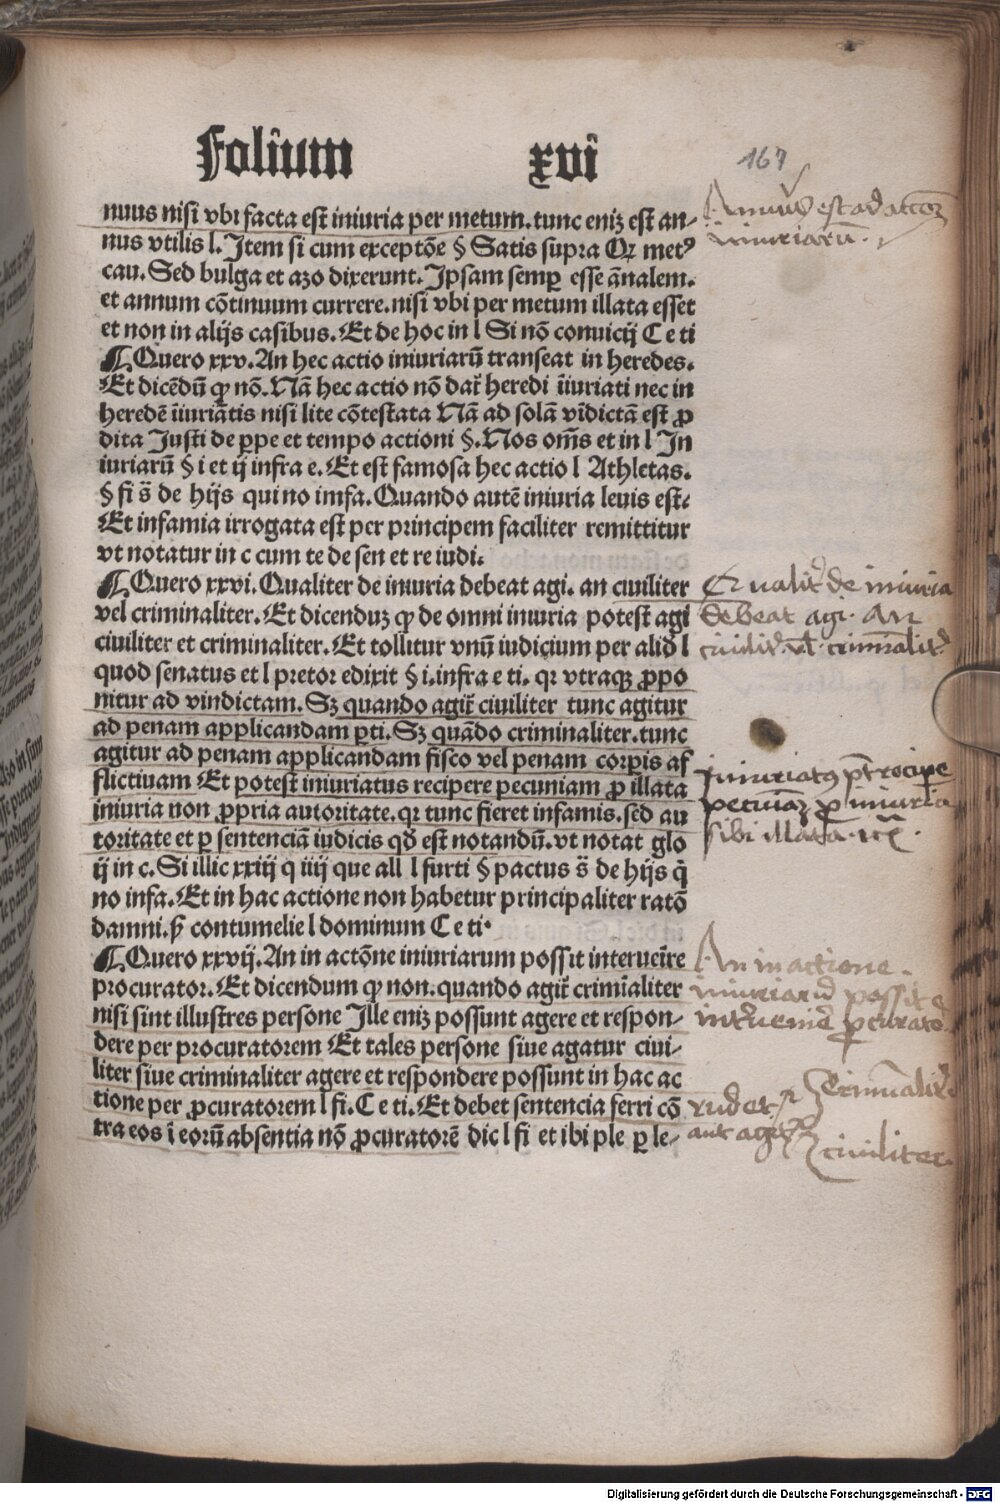 Foliũm xvi
167
nuus nisi vbi facta est iniuria per metum. tunc eniz est an-
nus vtilis l. Item si cum exceptõe § Satis supra Qꝛ metꝰ
cau. Sed bulga et azo dixerunt. Ipsam semꝑ esse ãnalem.
et annum cõtinuum currere. nisi vbi per metum illata esset
et non in alijs casibus. Et de hoc in l Si nõ conuicij C e ti
¶ Quero xxv. An hec actio iniuriarũ transeat in heredes.
Et dicẽdũ ꝙ nõ. Nã hec actio nõ dať heredi ĩiuriati nec in
heredẽ ĩiuriãtis nisi lite cõtestata Nã ad solã vĩdictã est ꝓ
dita Justi de ꝑpe et tempo actioni §. Nos om̃s et in l In
iuriarũ § i et ij infra e. Et est famosa hec actio l Athletas.
§ fi s̃ de hijs qui no imfa. Quando autẽ iniuria leuis est.
Et infamia irrogata est per principem faciliter remittitur
vt notatur in c cum te de sen et re iudi.
¶ Quero xxvi. Qualiter de iniuria debeat agi. an ciuiliter
vel criminaliter. Et dicenduz ꝙ de omni iniuria potest agi
ciuiliter et criminaliter. Et tollitur vnũ iudicium per aliđ l
quod senatus et l pretor edixit § i. infra e ti. qꝛ vtraqꝫ ꝓpo
nitur ad vindictam. Sꝫ quando agiť ciuiliter tunc agitur
ad penam applicandam ꝑti. Sꝫ quãdo criminaliter. tunc
agitur ad penam applicandam fisco vel penam corꝑis af
flictiuam Et potest iniuriatus recipere pecuniam ꝓ illata
iniuria non ꝓpria autoritate. qꝛ tunc fieret infamis. sed au
toritate et ꝑ sentenciã iudicis qđ est notandũ. vt notat glo
ij in c. Si illic xxiij q iiij que all l furti § pactus s̃ de hijs q̃
no infa. Et in hac actione non habetur principaliter ratõ
damni. ꝩ contumelie l dominum C e ti.
¶ Quero xxvij. An in actõne iniuriarum possit interuenĩre
procurator. Et dicendum ꝙ non. quando agiť crimĩaliter
nisi sint illustres persone Ille eniz possunt agere et respon-
dere per procuratorem Et tales persone siue agatur ciui-
liter siue criminaliter agere et respondere possunt in hac ac
tione per ꝓcuratorem l fi. C e ti. Et debet sentencia ferri cõ
tra eos ĩ eorũ absentia nõ ꝓcuratorẽ dic l fi et ibi ple ꝑ le-
Annuus est ad actõeꝫ
iniuriarũ.
Qualiť de iniuria
debeat agi. An
ciuiliť. vl̃ crimĩaliť
Iniuriatꝰ põt recipe
pecuniaꝫ ꝓ iniuria
sibi illata.
An in actione
iniuriarũ possit
inťuenire ꝓcurator
Criminaliť.
aut agiť
ciuiliter.
Digitalisierung gefördert durch die Deutsche Forschungsgemeinschaft - DFG